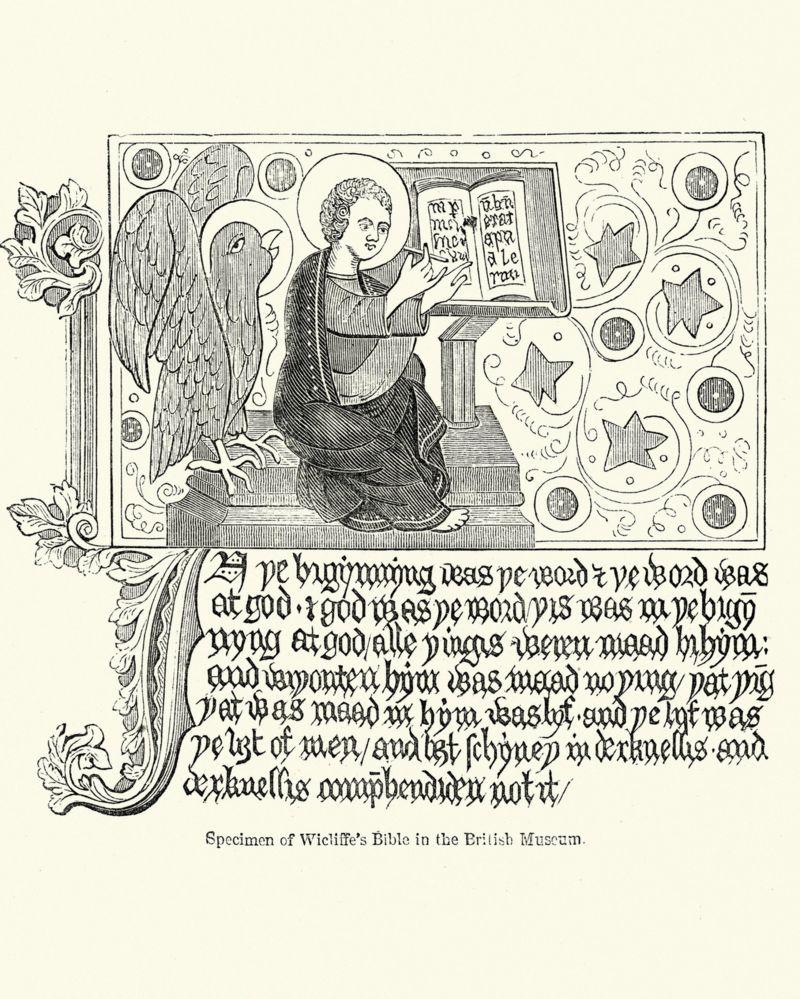 IN ye bigynnyng was ye word & ye word was
at god · & god was ye word yis was in ye bigyn̄
nyng at god / alle yingis weren maad bi hym :
and wiyouten hym was maad no ying / yat yīg
yat was maad in hym was lyf · and ye lyf was
ye liȝt of men / and liȝt schyney in derknessis · and
derknessis comp̄hendiden not it /
Specimen of Wicliffe's Bible in the British Museum.